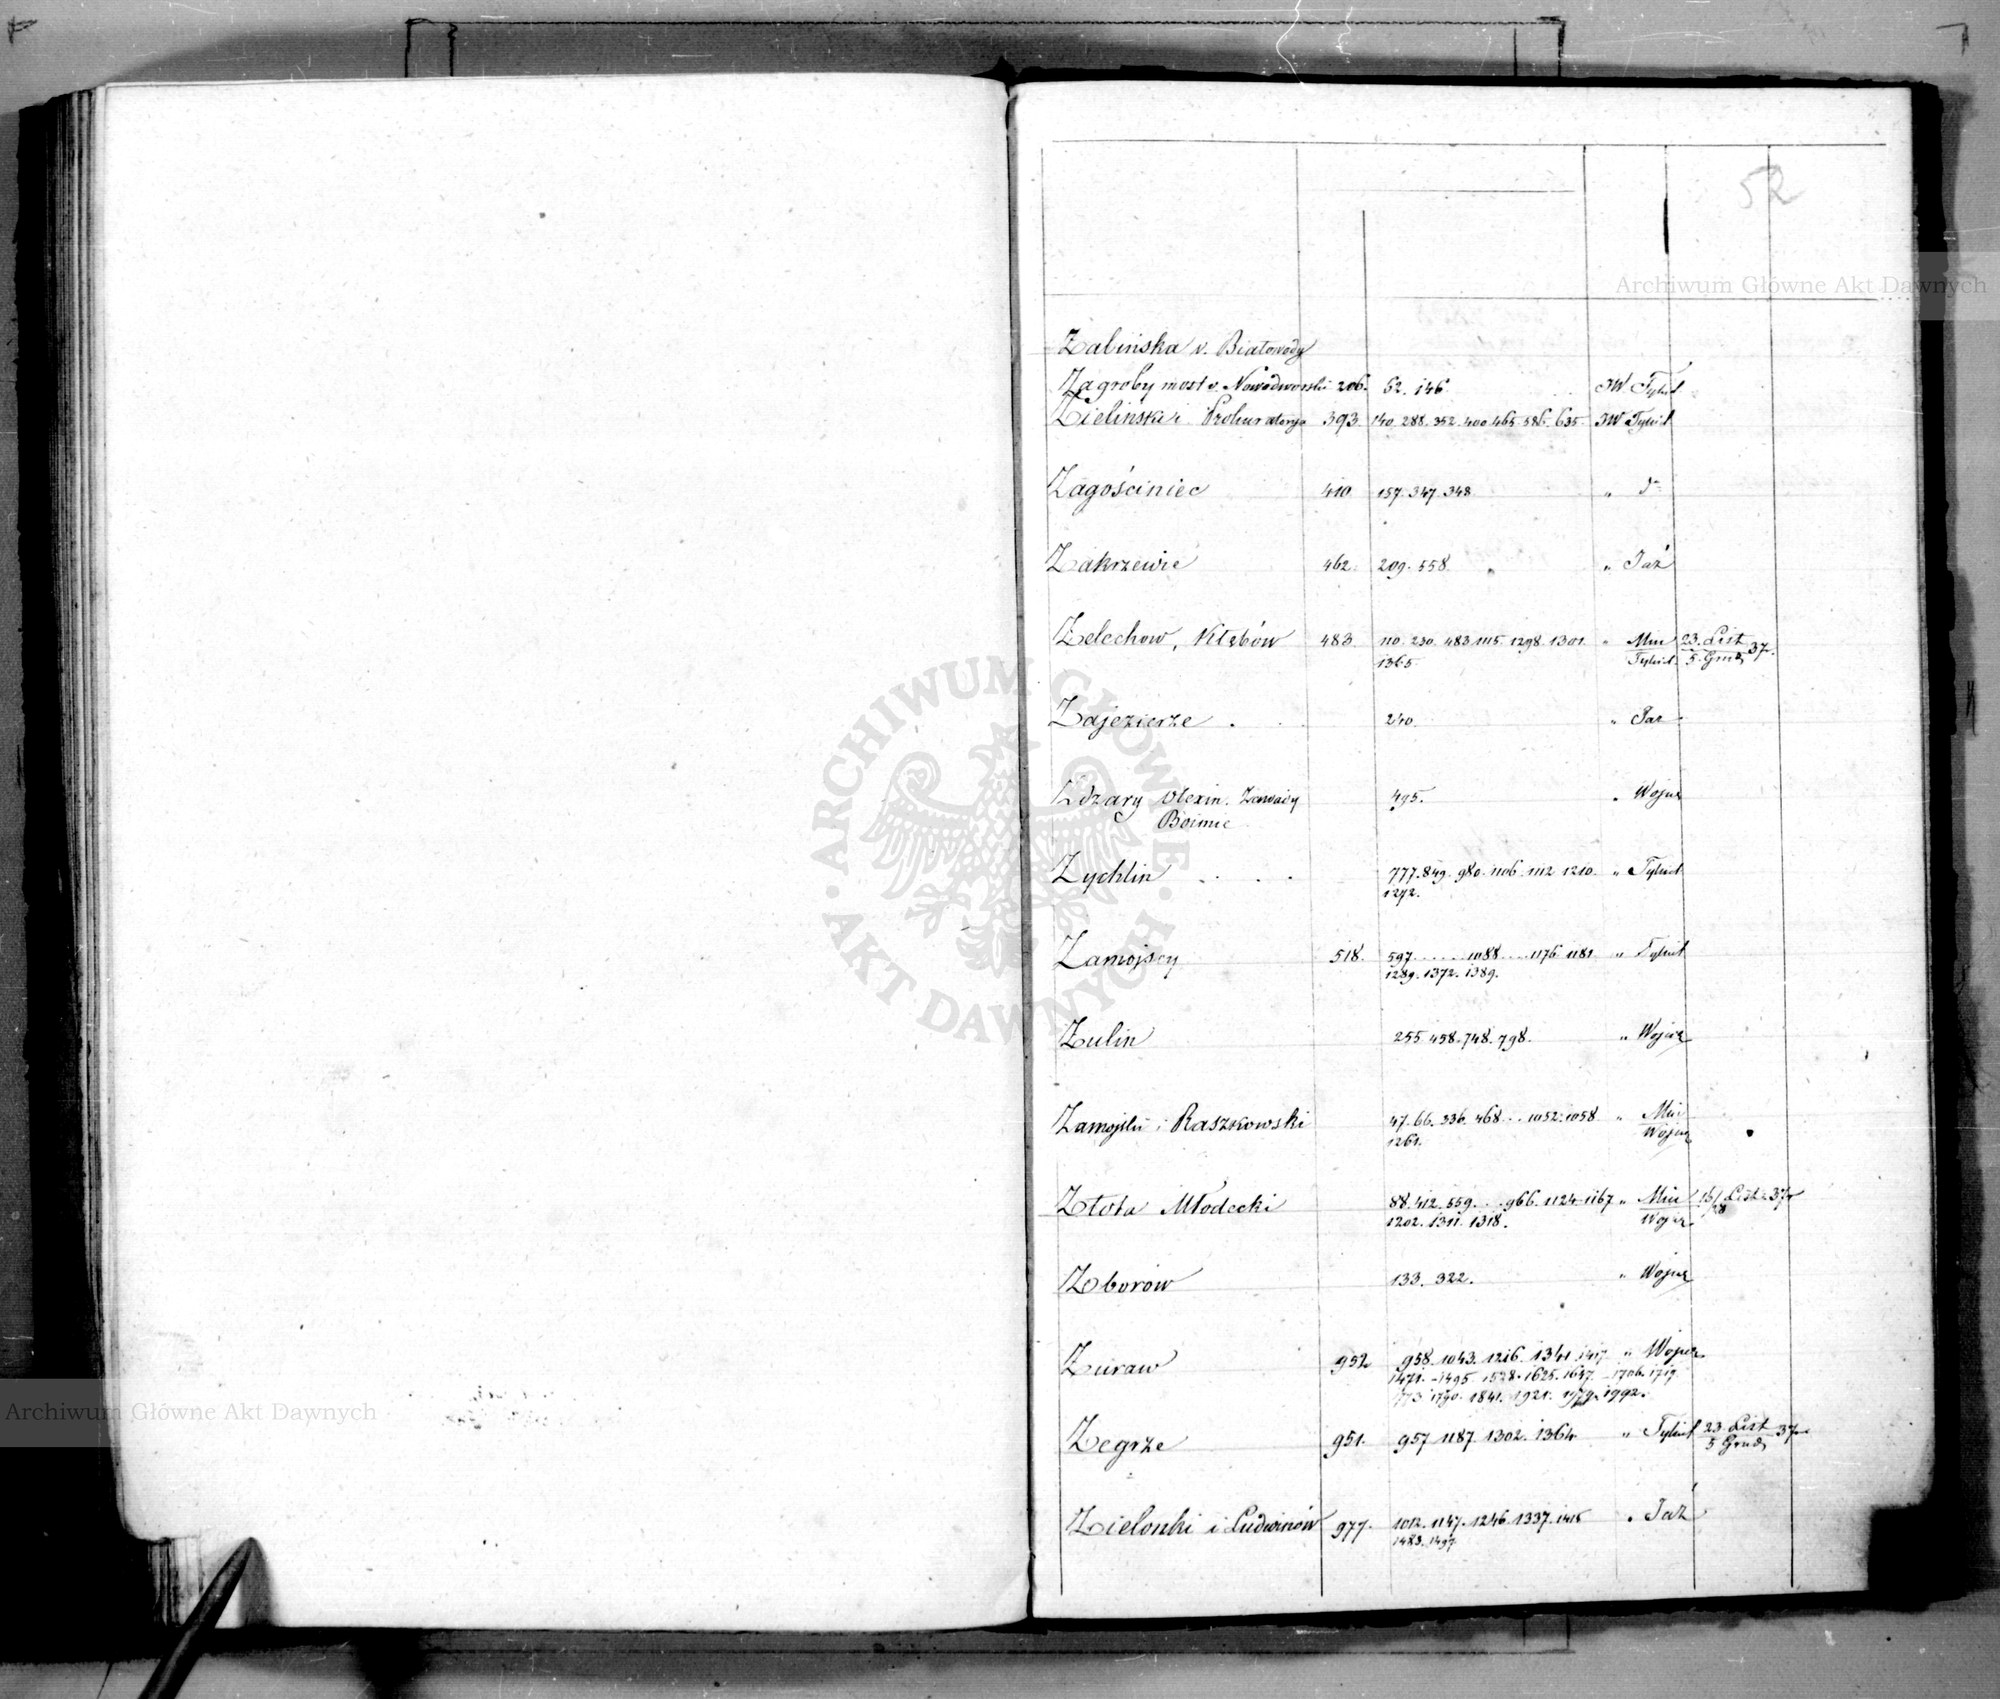 52
Archiwum Główne Akt Dawnych
Zalinska v. Białowody
Zagroby most v. Nowodworski 206. 62. 146. JW Tykiel
Zieliński i Prokuratorya 393. 140. 288. 352. 400. 465. 586. 635. JW Tykiel
Zagościniec 410 157. 347. 348 " do
Zakrzewie 462. 209. 558. " Jaź
Zelechow, Kłębów 483. 110. 230. 483. 1115. 1298. 1301. " Min 23. List
1365. Tykiel 5. Grud 37.
Zajezierze . . 240. "
Zdzary Olexin. Zawady 495. " Wojcz
Boimie
Zychlin . . . . 777. 849. 980. 1106. 1112 1210. " Tykiel
1272.
Zamojscy 518. 597 . . . . . . 1088 . . . . 1176 1181. " Tykiel
1289. 1372. 1389.
Zulin 255. 458. 748. 798. " Wojcz
Zamojski i Raszkowski 47. 66. 336. 468 . . . 1052. 1058 " Min
1261. Wojcz
Złota Młodecki 88. 412. 559. . . . 966. 1124 1167 " Min 16/28 List. 37
1202. 1311. 1318. Wojcz
Zborow 133. 322. " Wojcz
Zuraw 952 958. 1043. 1216. 1341. 1417 " Wojcz
1471. 1495. 1528. 1625. 1647. 1706. 1719.
1773 1790. 1841. 1921. 1979. 1992.
Zegrze 951. 957. 1187. 1302. 1364. " Tykiel 23. List
5 Grud 37
Zielonki i Ludwinów 977. 1012. 1147. 1246. 1337. 1415 " Jaź
1483. 1497
ARCHIWUM GŁÓWNE
AKT DAWNYCH
Archiwum Główne Akt Dawnych